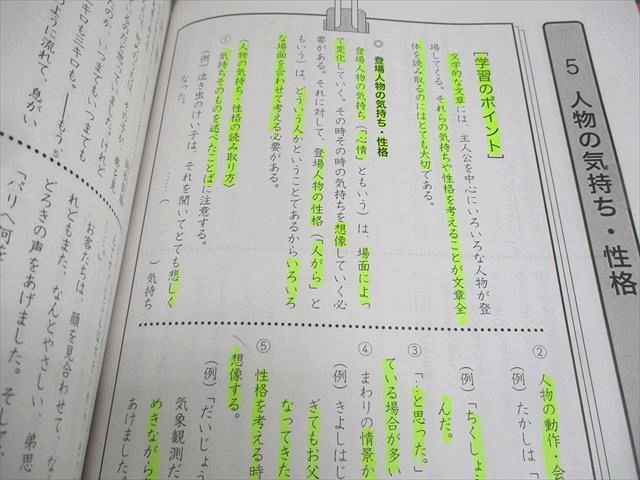 5 人物の気持ち・性格
[学習のポイント]
文学的な文章には、主人公を中心にいろいろな人物が登
場してくる。それらの気持ちや性格を考えることが文章全
体を読み取るのにはとても大切である。
◎ 登場人物の気持ち・性格
登場人物の気持ち(「心情」ともいう)は、場面によっ
て変化していく。その時その時の気持ちを想像していく必
要がある。それに対して、登場人物の性格(「人がら」と
もいう)は、どういう人かということであるからいろいろ
な場面を合わせて考える必要がある。
(人物の気持ち・性格の読み取り方)
① 気持ちそのものを述べたことばに注意する。
(例) 泣き虫のけい子は、それを聞いてとても悲しく
なった。
……( )気持ち
② 人物の動作・会
(例) たかしは「
(例) 「ちくしょう
んだ。
③ 「…と思った。」
ている場合が多い
④ まわりの情景か
(例) きよしはじ
ぎてもお父
なってきた
⑤ 性格を考える時
想像する。
(例) 「だいじょう
気象観測だ
めきながら
あけました。
お客たちは、顔を見合わせて、な
れどもまた、なんとやさしい、弟思
どろきの声をあげました。
「パリへ何を
ました。そして、
ように流れて、息がい
キロもミキロも。――もう。